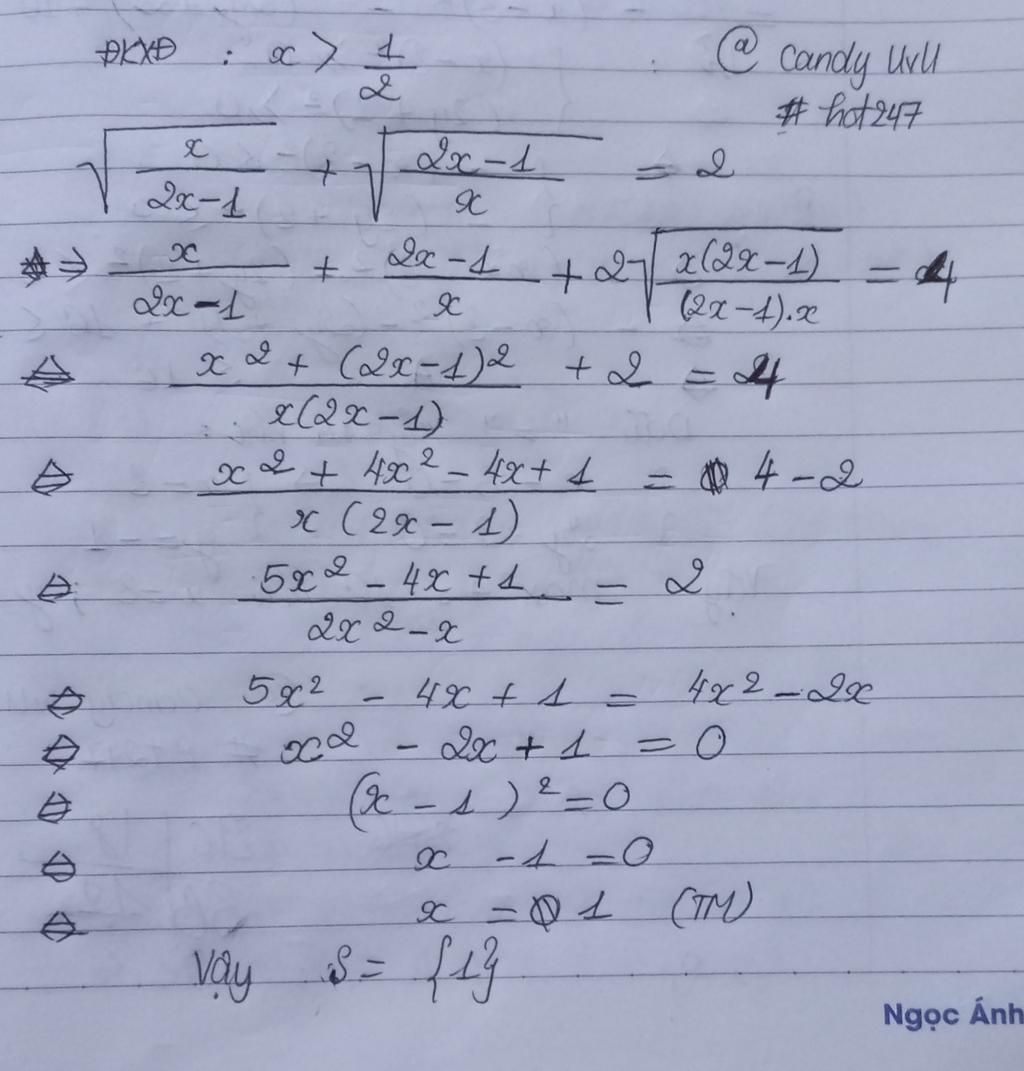 ĐKXĐ : x > 1/2
@ candy UvU
# hot247
√(x/(2x-1)) + √((2x-1)/x) = 2
⇒ x/(2x-1) + (2x-1)/x + 2√(x(2x-1)/((2x-1).x)) = 4
⇔ (x² + (2x-1)²)/(x(2x-1)) + 2 = 4
⇔ (x² + 4x² - 4x + 1)/(x(2x-1)) = 4 - 2
⇔ (5x² - 4x + 1)/(2x² - x) = 2
⇔ 5x² - 4x + 1 = 4x² - 2x
⇔ x² - 2x + 1 = 0
⇔ (x - 1)² = 0
⇔ x - 1 = 0
⇔ x = 1 (TM)
Vậy S = {1}
Ngọc Ánh